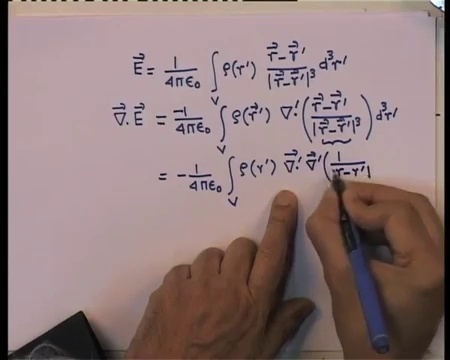 E⃗ = 1/4πε₀ ∫_V ρ(r') (r⃗-r⃗')/|r⃗-r⃗'|³ d³r'
∇⃗.E⃗ = -1/4πε₀ ∫_V ρ(r⃗') ∇⃗'.((r⃗-r⃗')/|r⃗-r⃗'|³) d³r'
= -1/4πε₀ ∫_V ρ(r') ∇⃗'.∇⃗'(1/|r-r'|